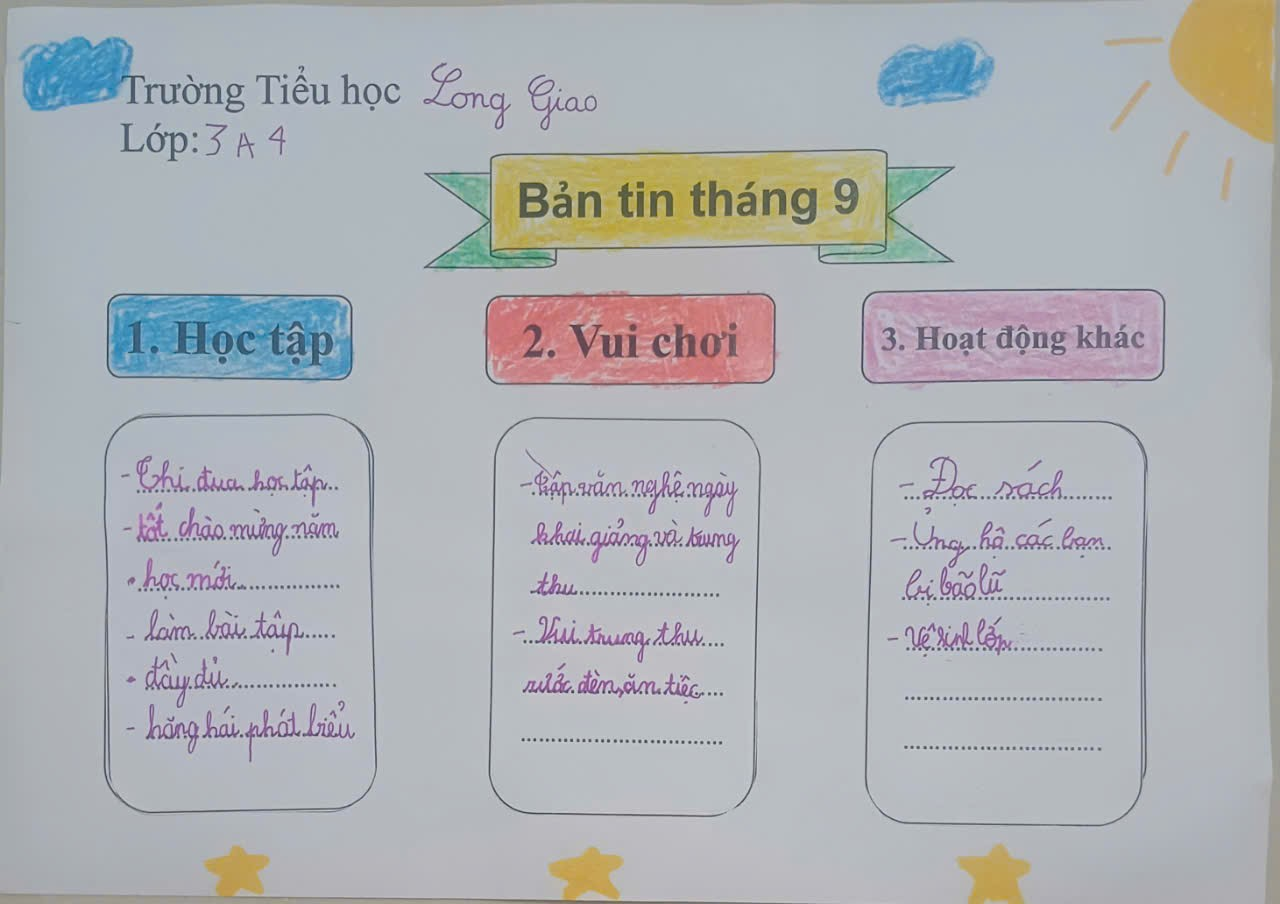 Trường Tiểu học Long Giao
Lớp: 3A4
Bản tin tháng 9
1. Học tập
- Thi đua học tập
- tốt chào mừng năm
• học mới
- làm bài tập
• đầy đủ
- hăng hái phát biểu
2. Vui chơi
- Tập văn nghệ ngày
khai giảng và trung
thu
- Vui trung thu
rước đèn, ăn tiệc
3. Hoạt động khác
- Đọc sách
- Ủng hộ các bạn
bị bão lũ
- Vệ sinh lớp